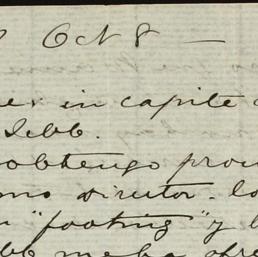 Oct 8 —
in capite
Debb.
obtengo prou
mo Director. lo
"footing" y l
me ha ofre